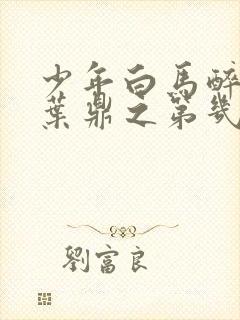 少年白馬醉
葉鼎之第幾
劉富良